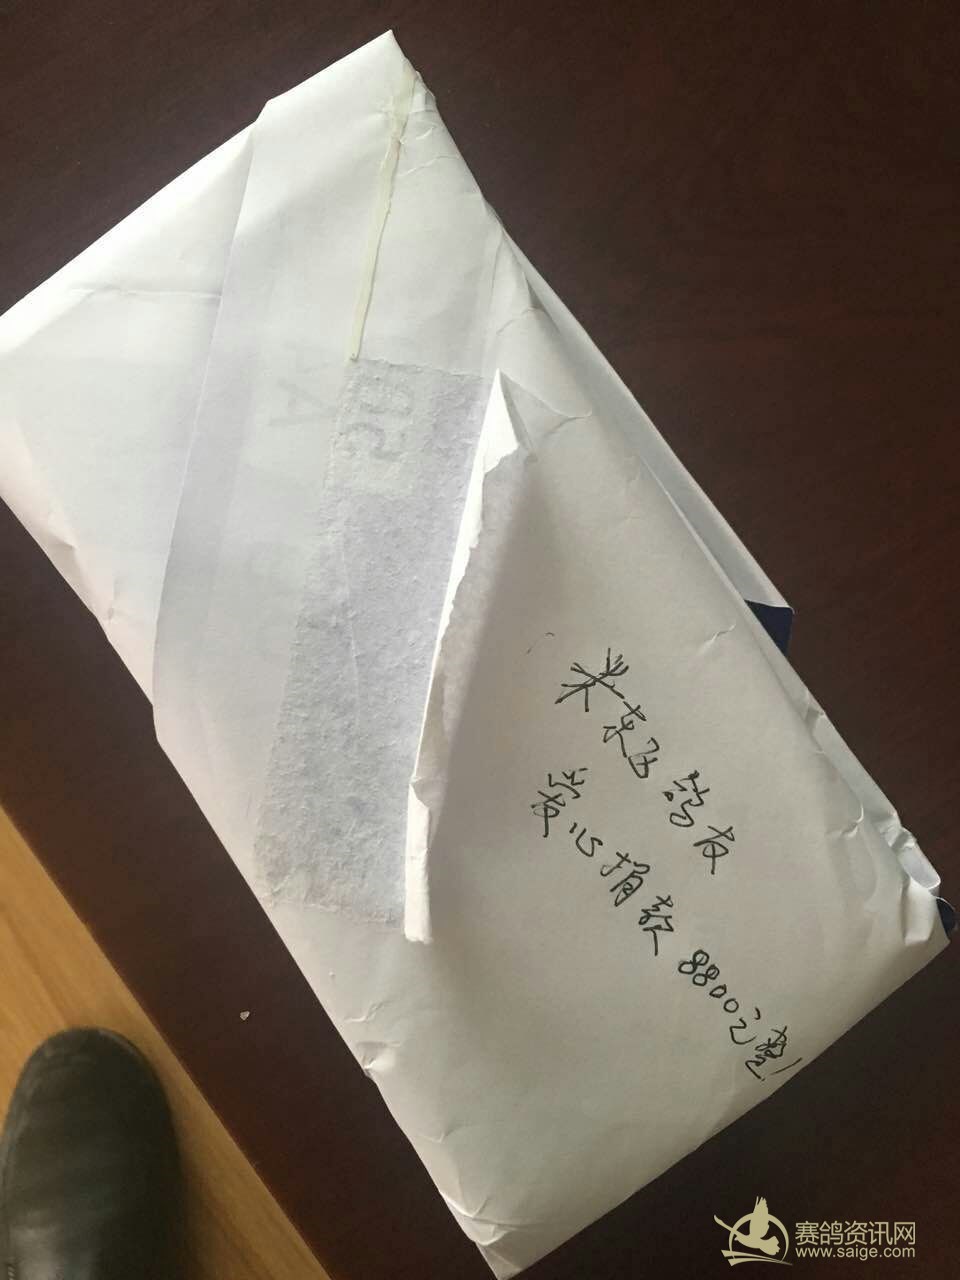 东飞鸽友
爱心捐款8800元整!
赛鸽资讯网
www.saige.com